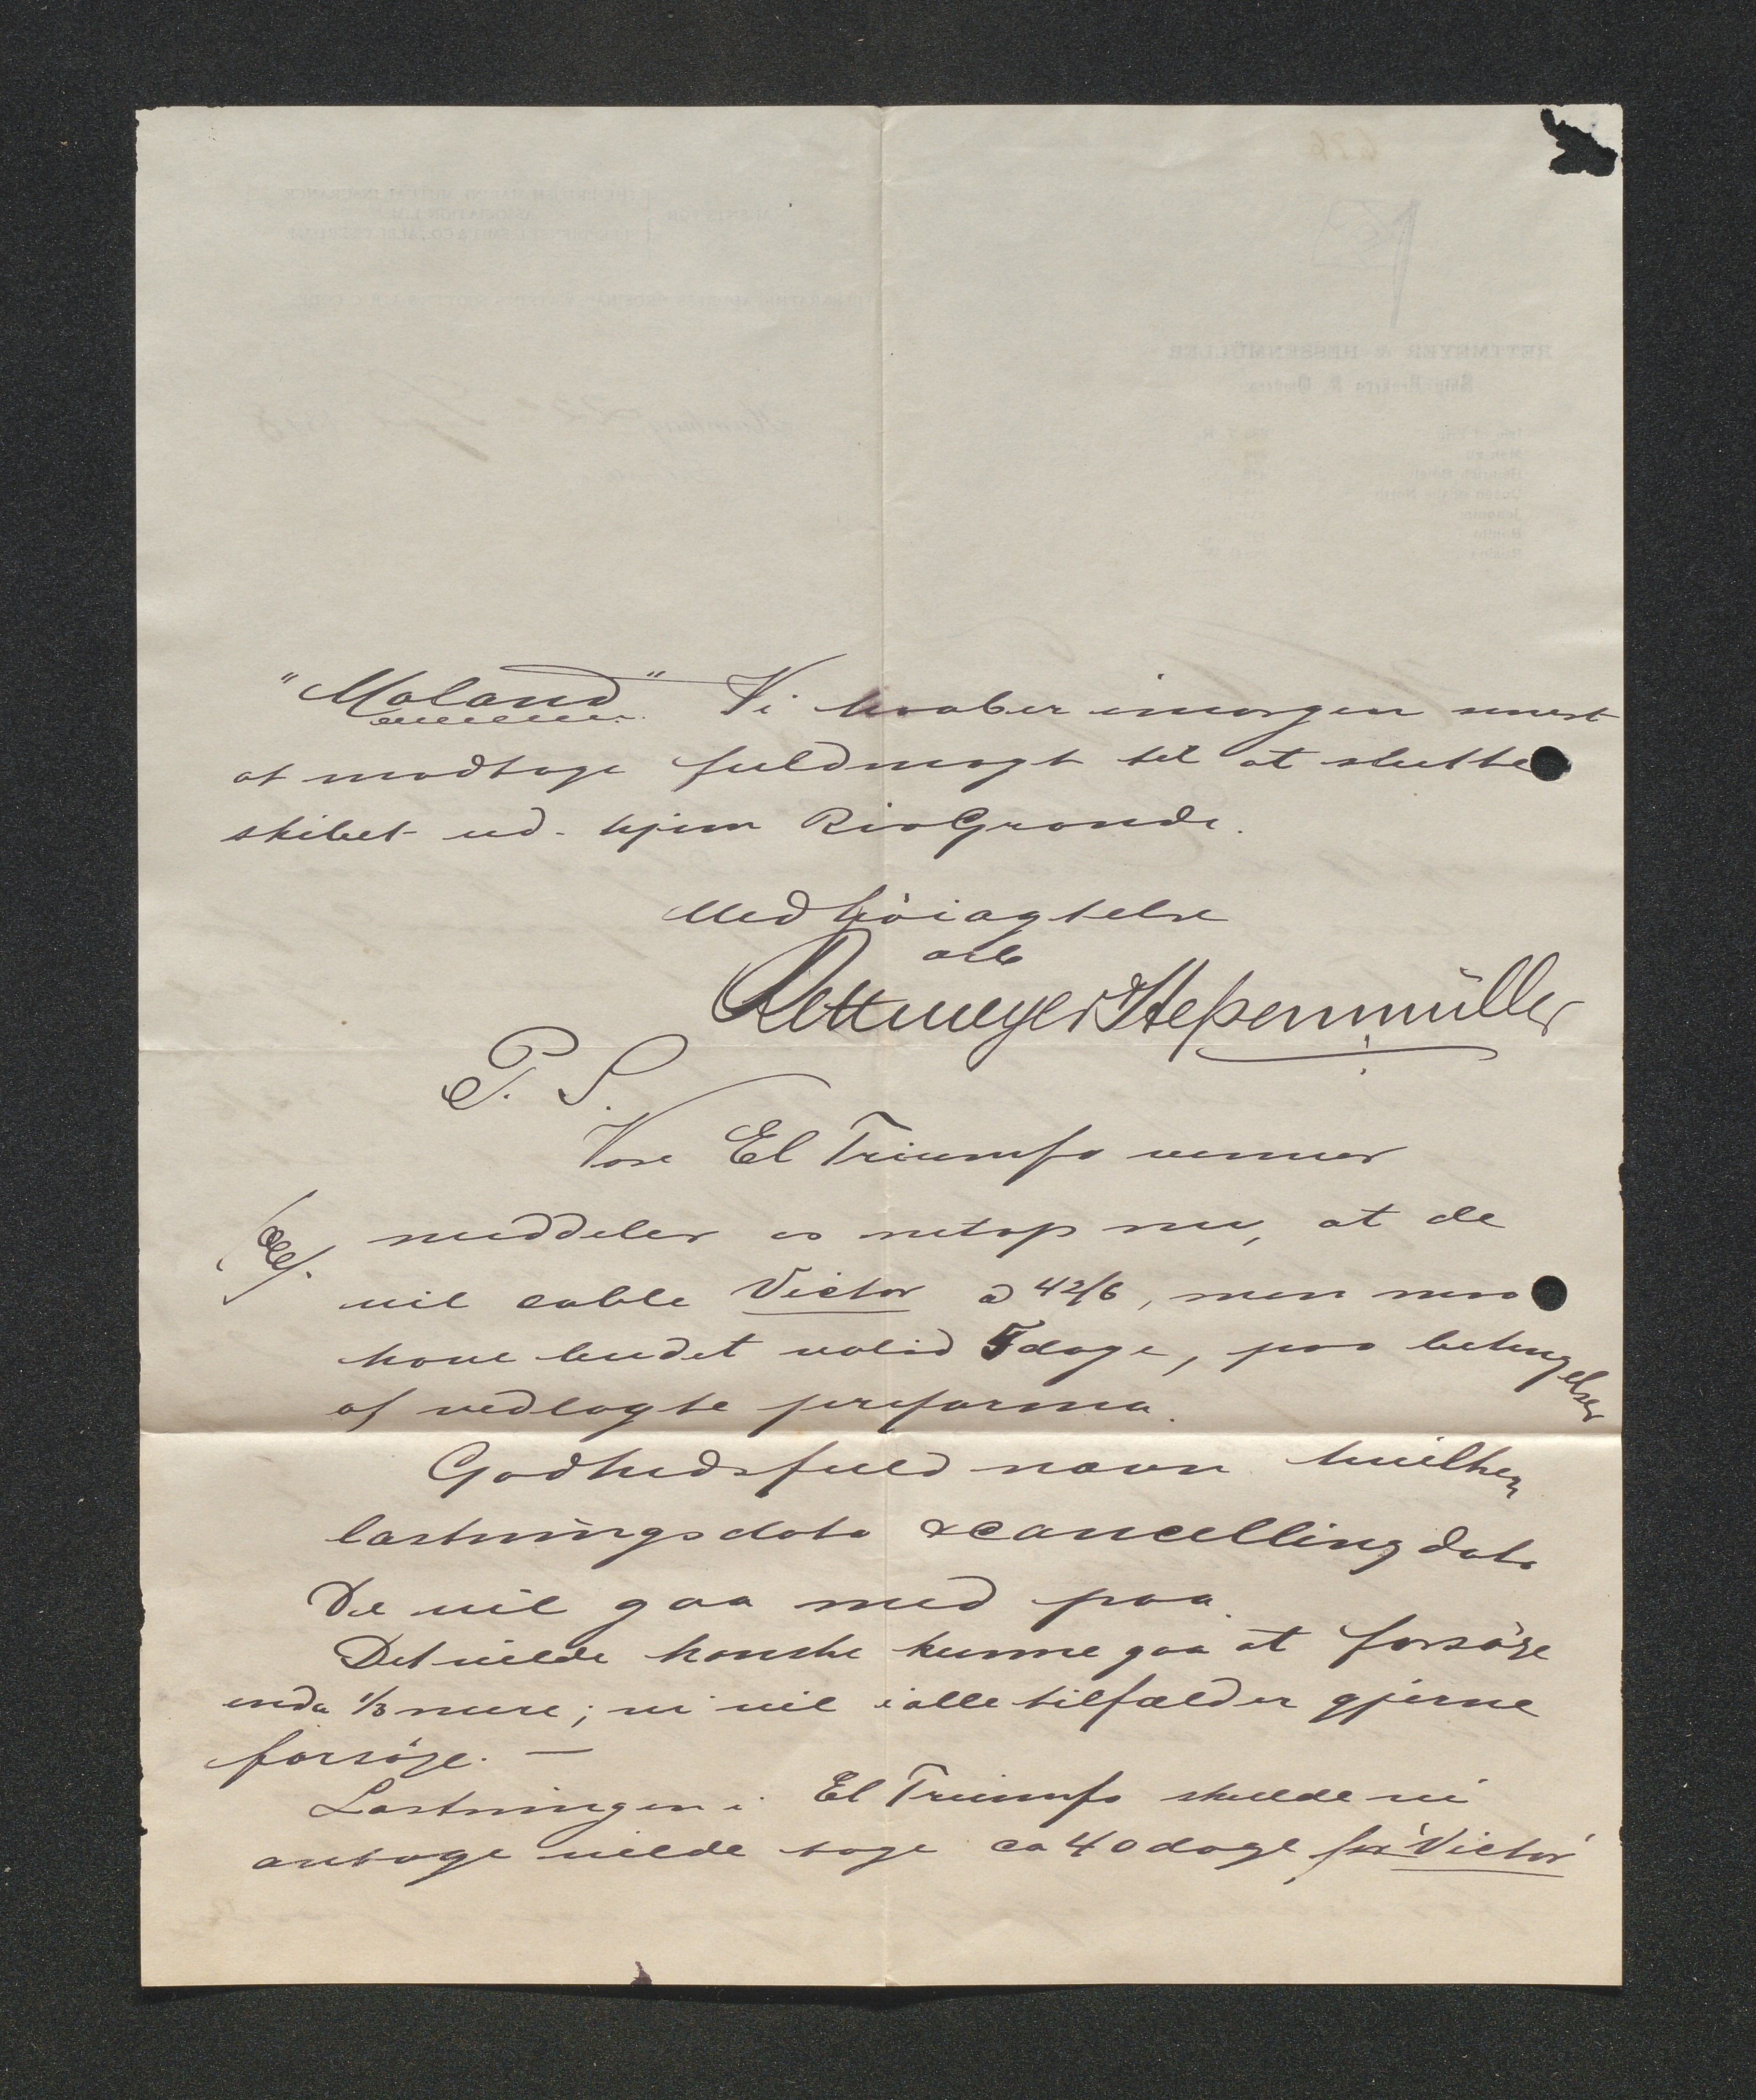 "Moland" Vi haaber imorgen snart
at modtage fuldmagt til at slutte
skibet ud- hjem Rio Grande.
Med höiagtelse
Rettmeyer & Heßenmüller
P. S.
Vore El Triumfo venner
meddeler os netop nu, at de
vil cable Victor a 42/6, men maa
have budet valid 5 dage, paa betingelser
af vedlagte proforma.
Godhedsfuld nævn hvilken
lastningsdato & cancelling dato
De vil gaa med paa.
Det vilde kanske kunne gaa at forsöge
enda 1/3 mere; vi vil i alle tilfælder gjerne
forsöge. —
Lastningen i El Triumfo skulde vi
antage vilde tage ca 40 dage for "Victor"
RETTMEYER & HESSENMÜLLER
Ship-Brokers & Owners.